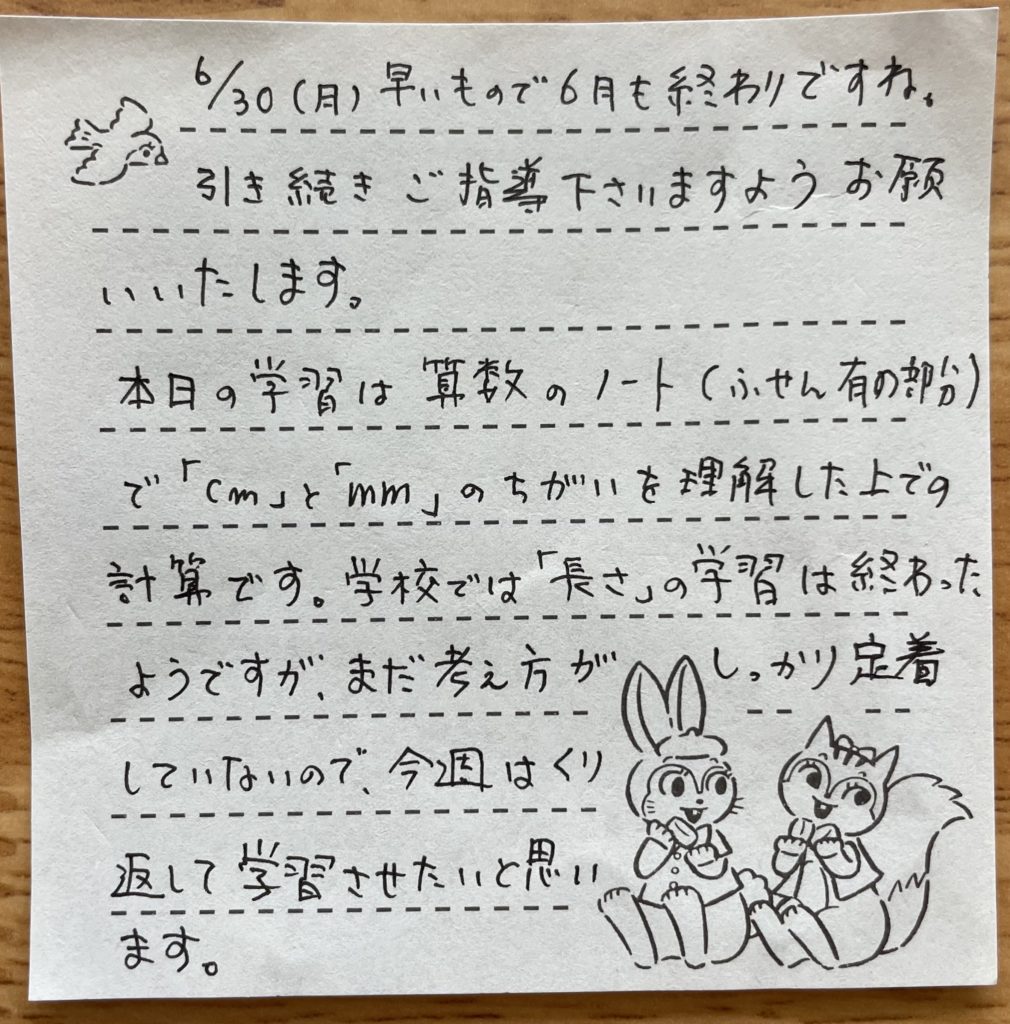 6/30(月)早いもので6月も終わりですね。
引き続きご指導下さいますようお願
いいたします。
本日の学習は算数のノート(ふせん有の部分)
で「cm」と「mm」のちがいを理解した上での
計算です。学校では「長さ」の学習は終わった
ようですが、まだ考え方がしっかり定着
していないので、今週はくり
返して学習させたいと思い
ます。